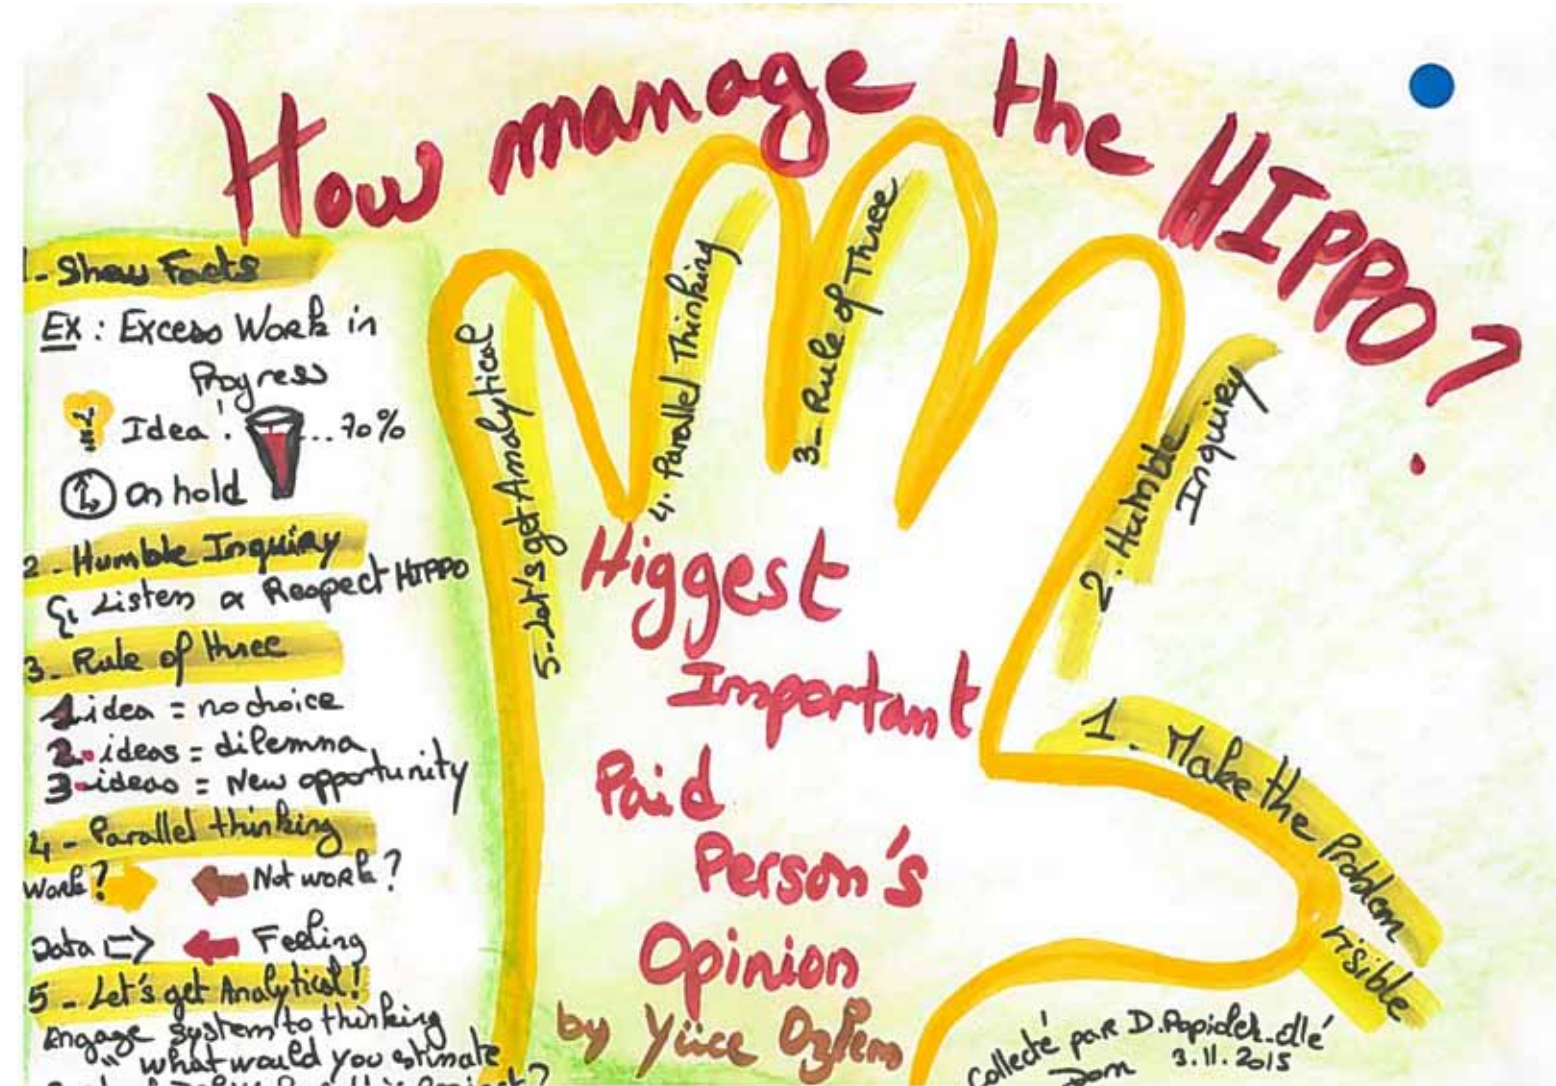 How manage the HIPPO?
1- Show Facts
EX: Excess Work in
Progress
Idea! ...70%
On hold
2- Humble Inquiry
Listen & Respect HIPPO
3- Rule of three
1 idea = no choice
2 ideas = dilemna
3 ideas = New opportunity
4- Parallel thinking
Work? Not work?
Data Feeling
5- Let's get Analytical!
Engage system to thinking
" what would you estimate
5-Let's get Analytical
4. Parallel Thinking
3- Rule of Three
2. Humble
Inquiry
1. Make the Problem
visible
Higgest
Important
Paid
Person's
Opinion
by Yüce Ozlem
Collecté par D. Popiolek-ollé
Dom 3.11.2015